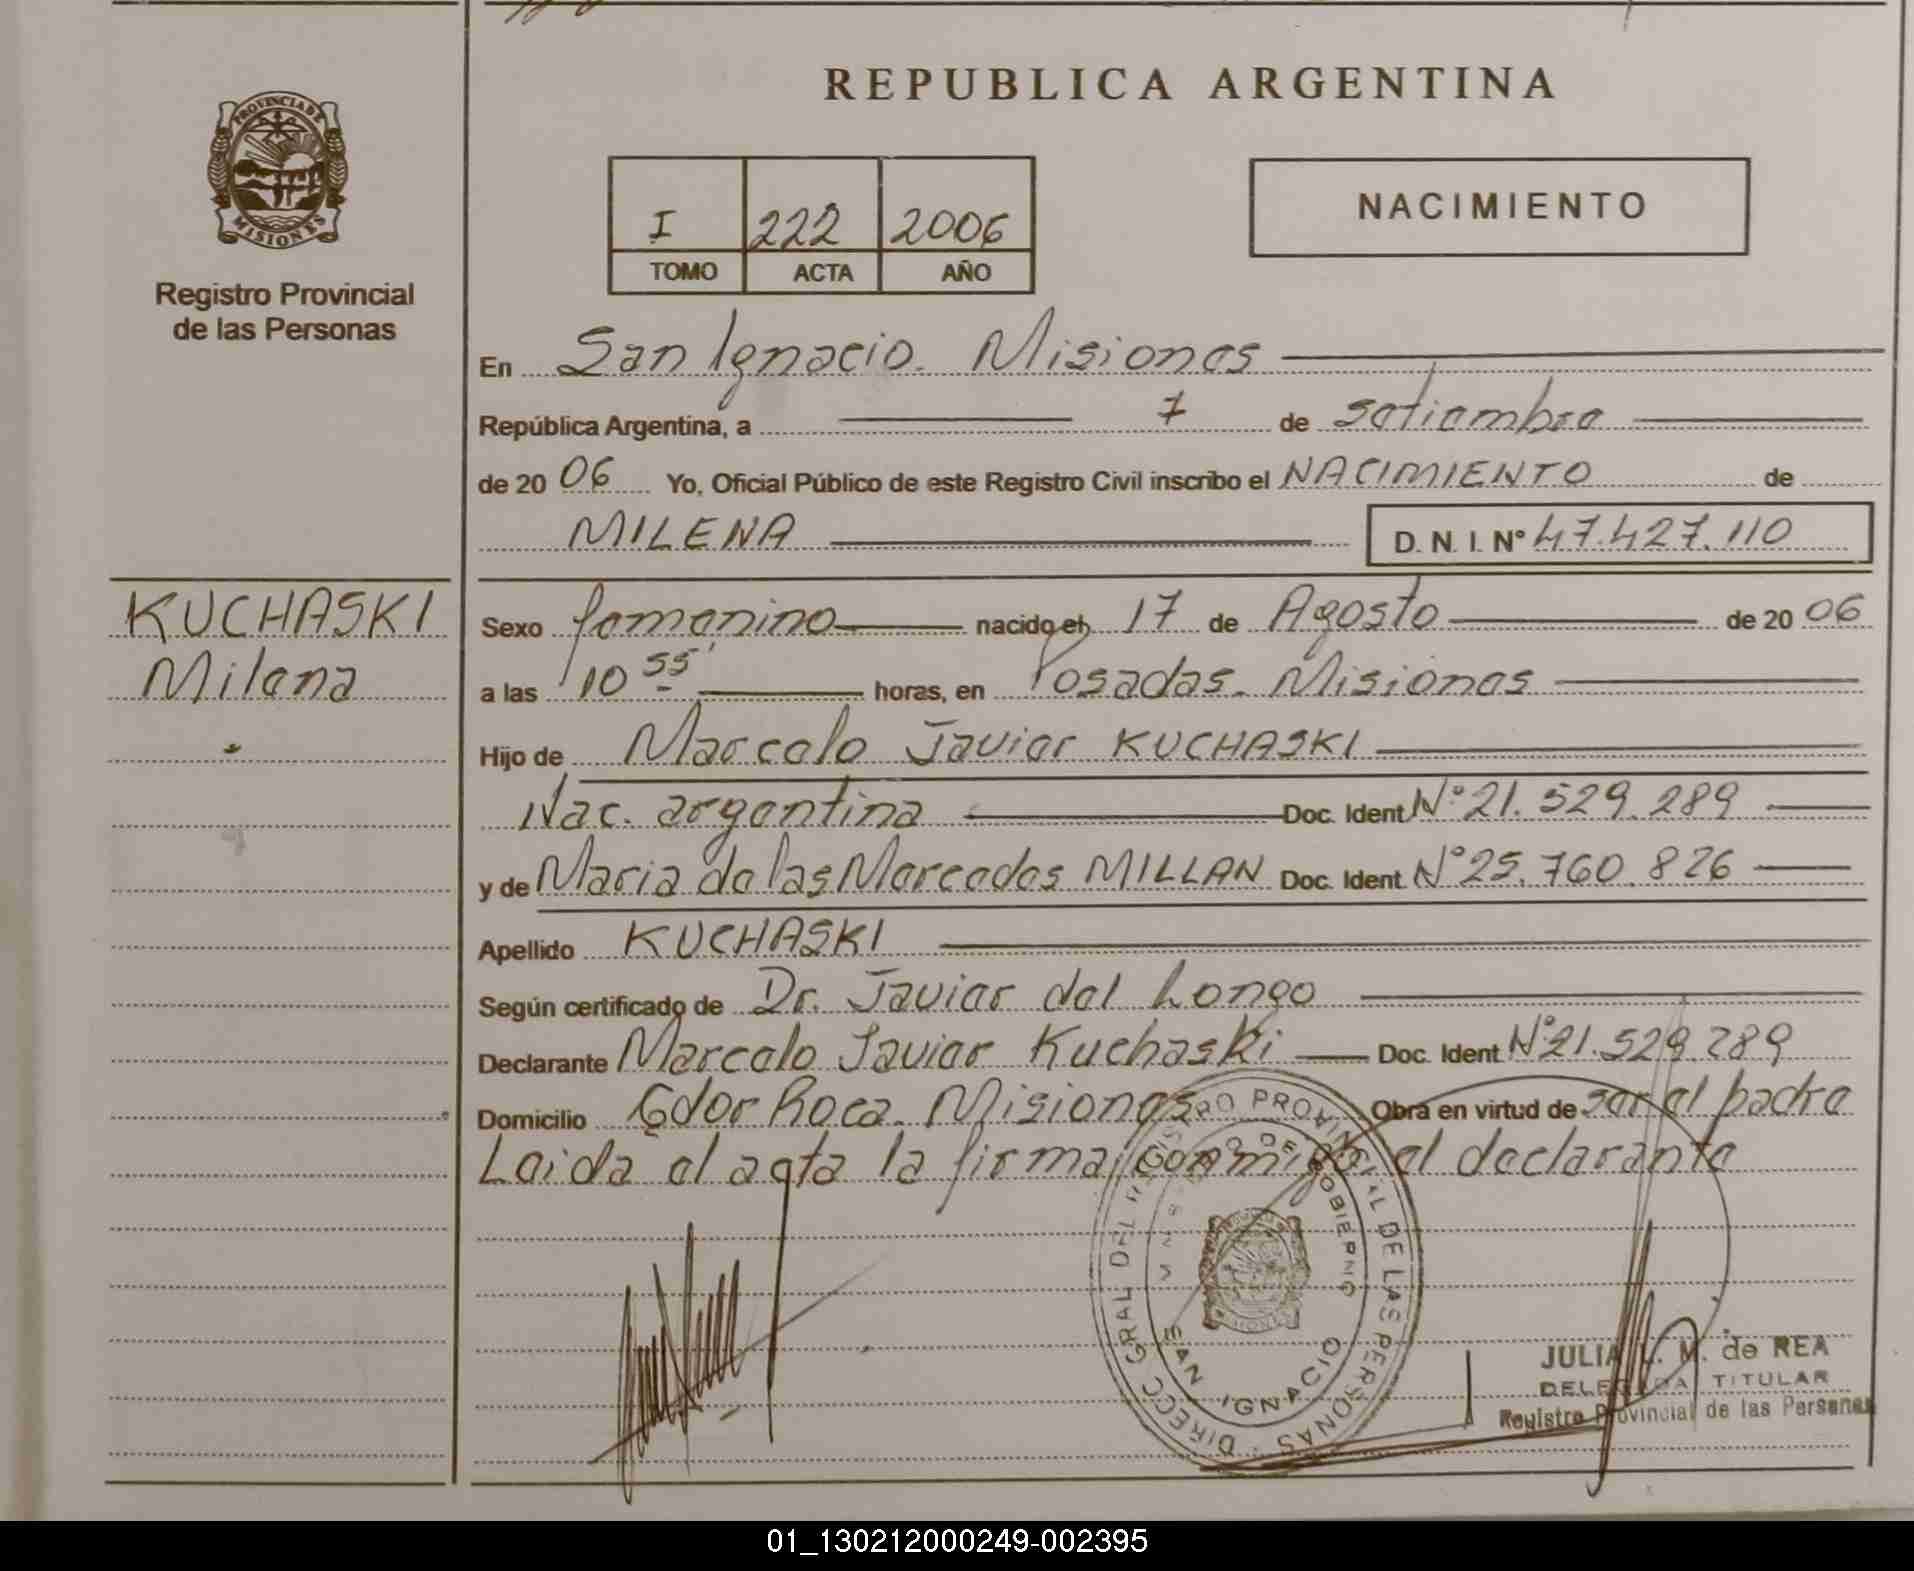 REPUBLICA ARGENTINA
PROVINCIA DE
MISIONES
Registro Provincial
de las Personas
I 222 2006
TOMO ACTA AÑO
NACIMIENTO
En San Ignacio. Misiones
República Argentina, a 7 de setiembre
de 20 06 Yo, Oficial Público de este Registro Civil inscribo el NACIMIENTO de
MILENA D. N. I. Nº 47.427.110
KUCHASKI
Milena
Sexo femenino nacido el 17 de Agosto de 20 06
a las 10 55' horas, en Posadas. Misiones
Hijo de Marcelo Javier KUCHASKI
Nac. argentina Doc. Ident. Nº 21.529.289
y de Maria de las Mercedes MILLAN Doc. Ident. Nº 25.760.826
Apellido KUCHASKI
Según certificado de Dr. Javier del Longo
Declarante Marcelo Javier Kuchaski Doc. Ident. Nº 21.529.289
Domicilio Gdor Roca. Misiones Obra en virtud de ser el padre
Leida el acta la firma conmigo el declarante
DIRECC GRAL DEL REGISTRO PROVINCIAL DE LAS PERSONAS
DE GOBIERNO
SAN IGNACIO
JULIA L. M. de REA
DELEGADA TITULAR
Registro Provincial de las Personas
01_130212000249-002395